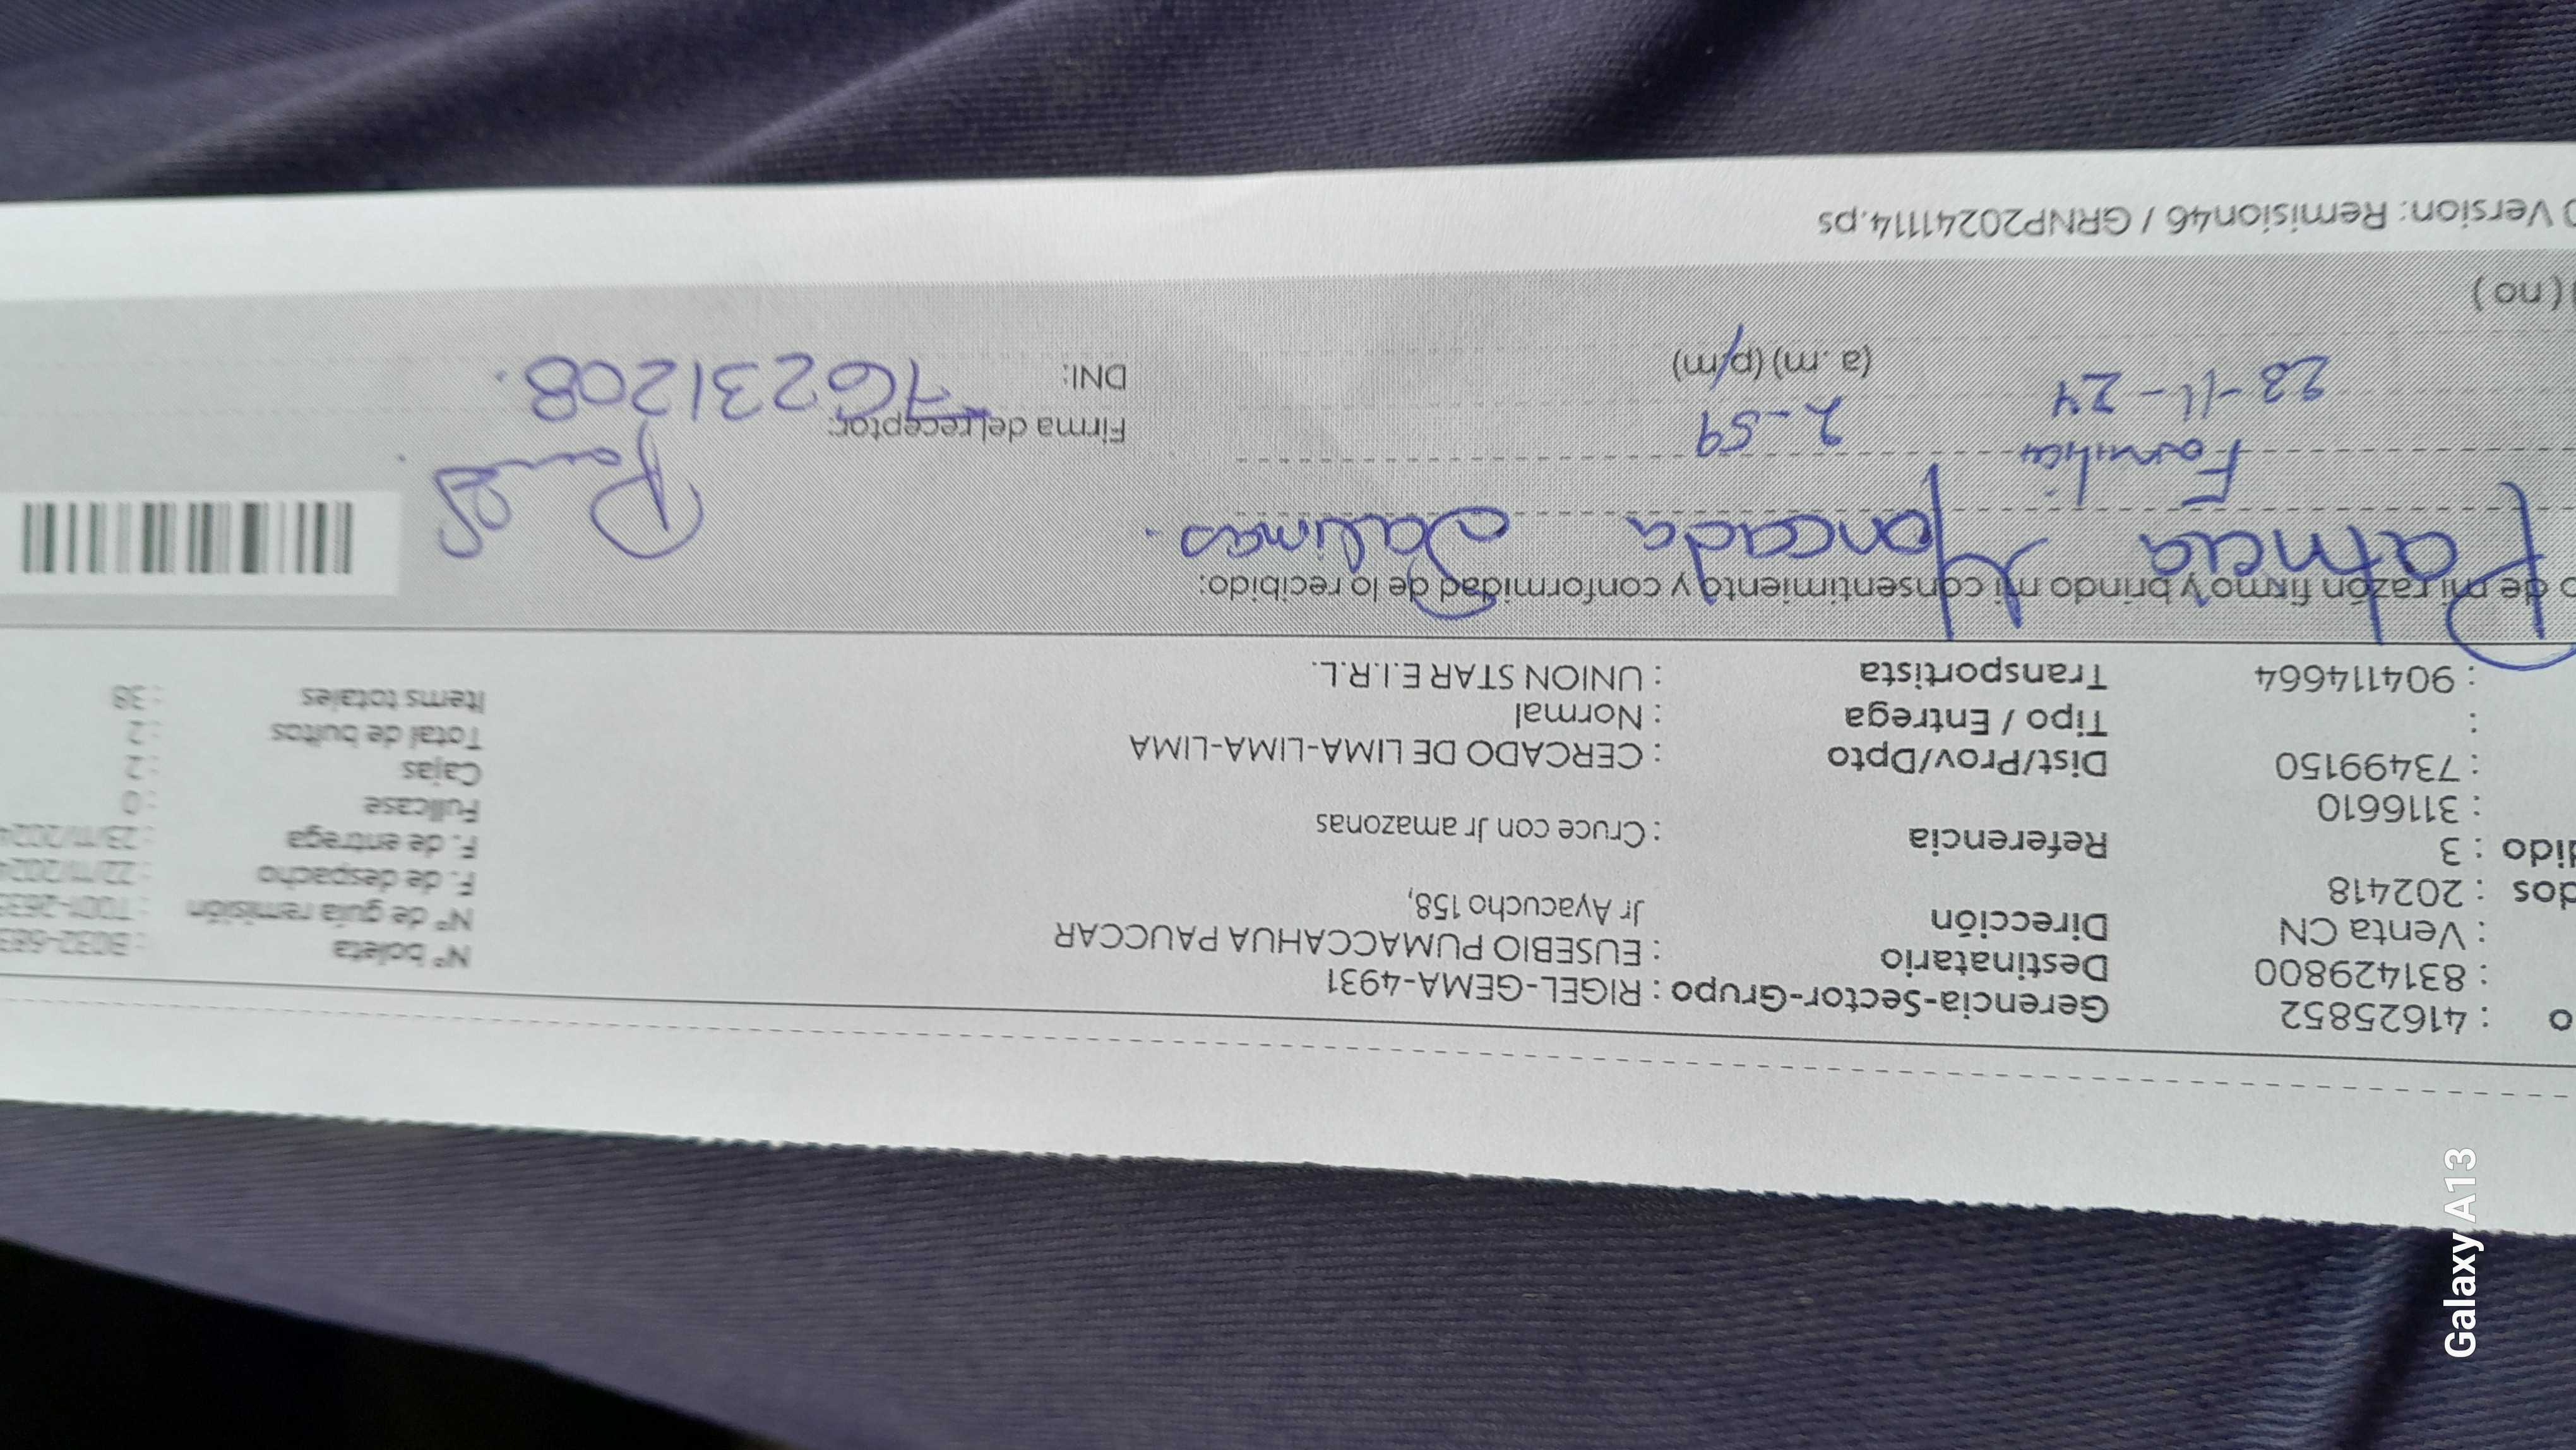 o : 41625852 Gerencia-Sector-Grupo : RIGEL-GEMA-4931
: 831429800 Destinatario : EUSEBIO PUMACCAHUA PAUCCAR Nº boleta : B032-683
: Venta CN Dirección Jr Ayacucho 158, Nº de guía remisión : T001-263
dos : 202418 F. de despacho : 22/11/2024
dido : 3 Referencia : Cruce con Jr amazonas F. de entrega : 23/11/2024
: 3116610 Fullcase : 0
: 73499150 Dist/Prov/Dpto : CERCADO DE LIMA-LIMA-LIMA Cajas : 2
: Tipo / Entrega : Normal Total de bultos : 2
: 904114664 Transportista : UNION STAR E.I.R.L. Items totales : 38
o de mi razón firmo y brindo mi consentimiento y conformidad de lo recibido:
Patricia Moncada Salinas.
Familia
23-11-24 2-59 Firma del receptor:
(a.m) (p/m) DNI: 76231208.
(no)
Version: Remision46 / GRNP20241114.ps
Galaxy A13